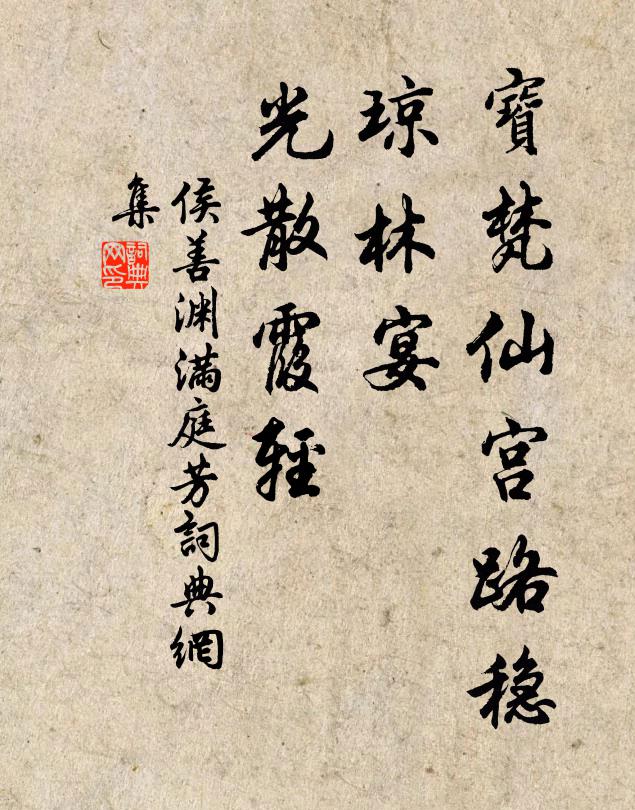 寶梵仙宫路稳
琼林宴
光散霞輕
侯善渊满庭芳詞典網
集
詞典
网印